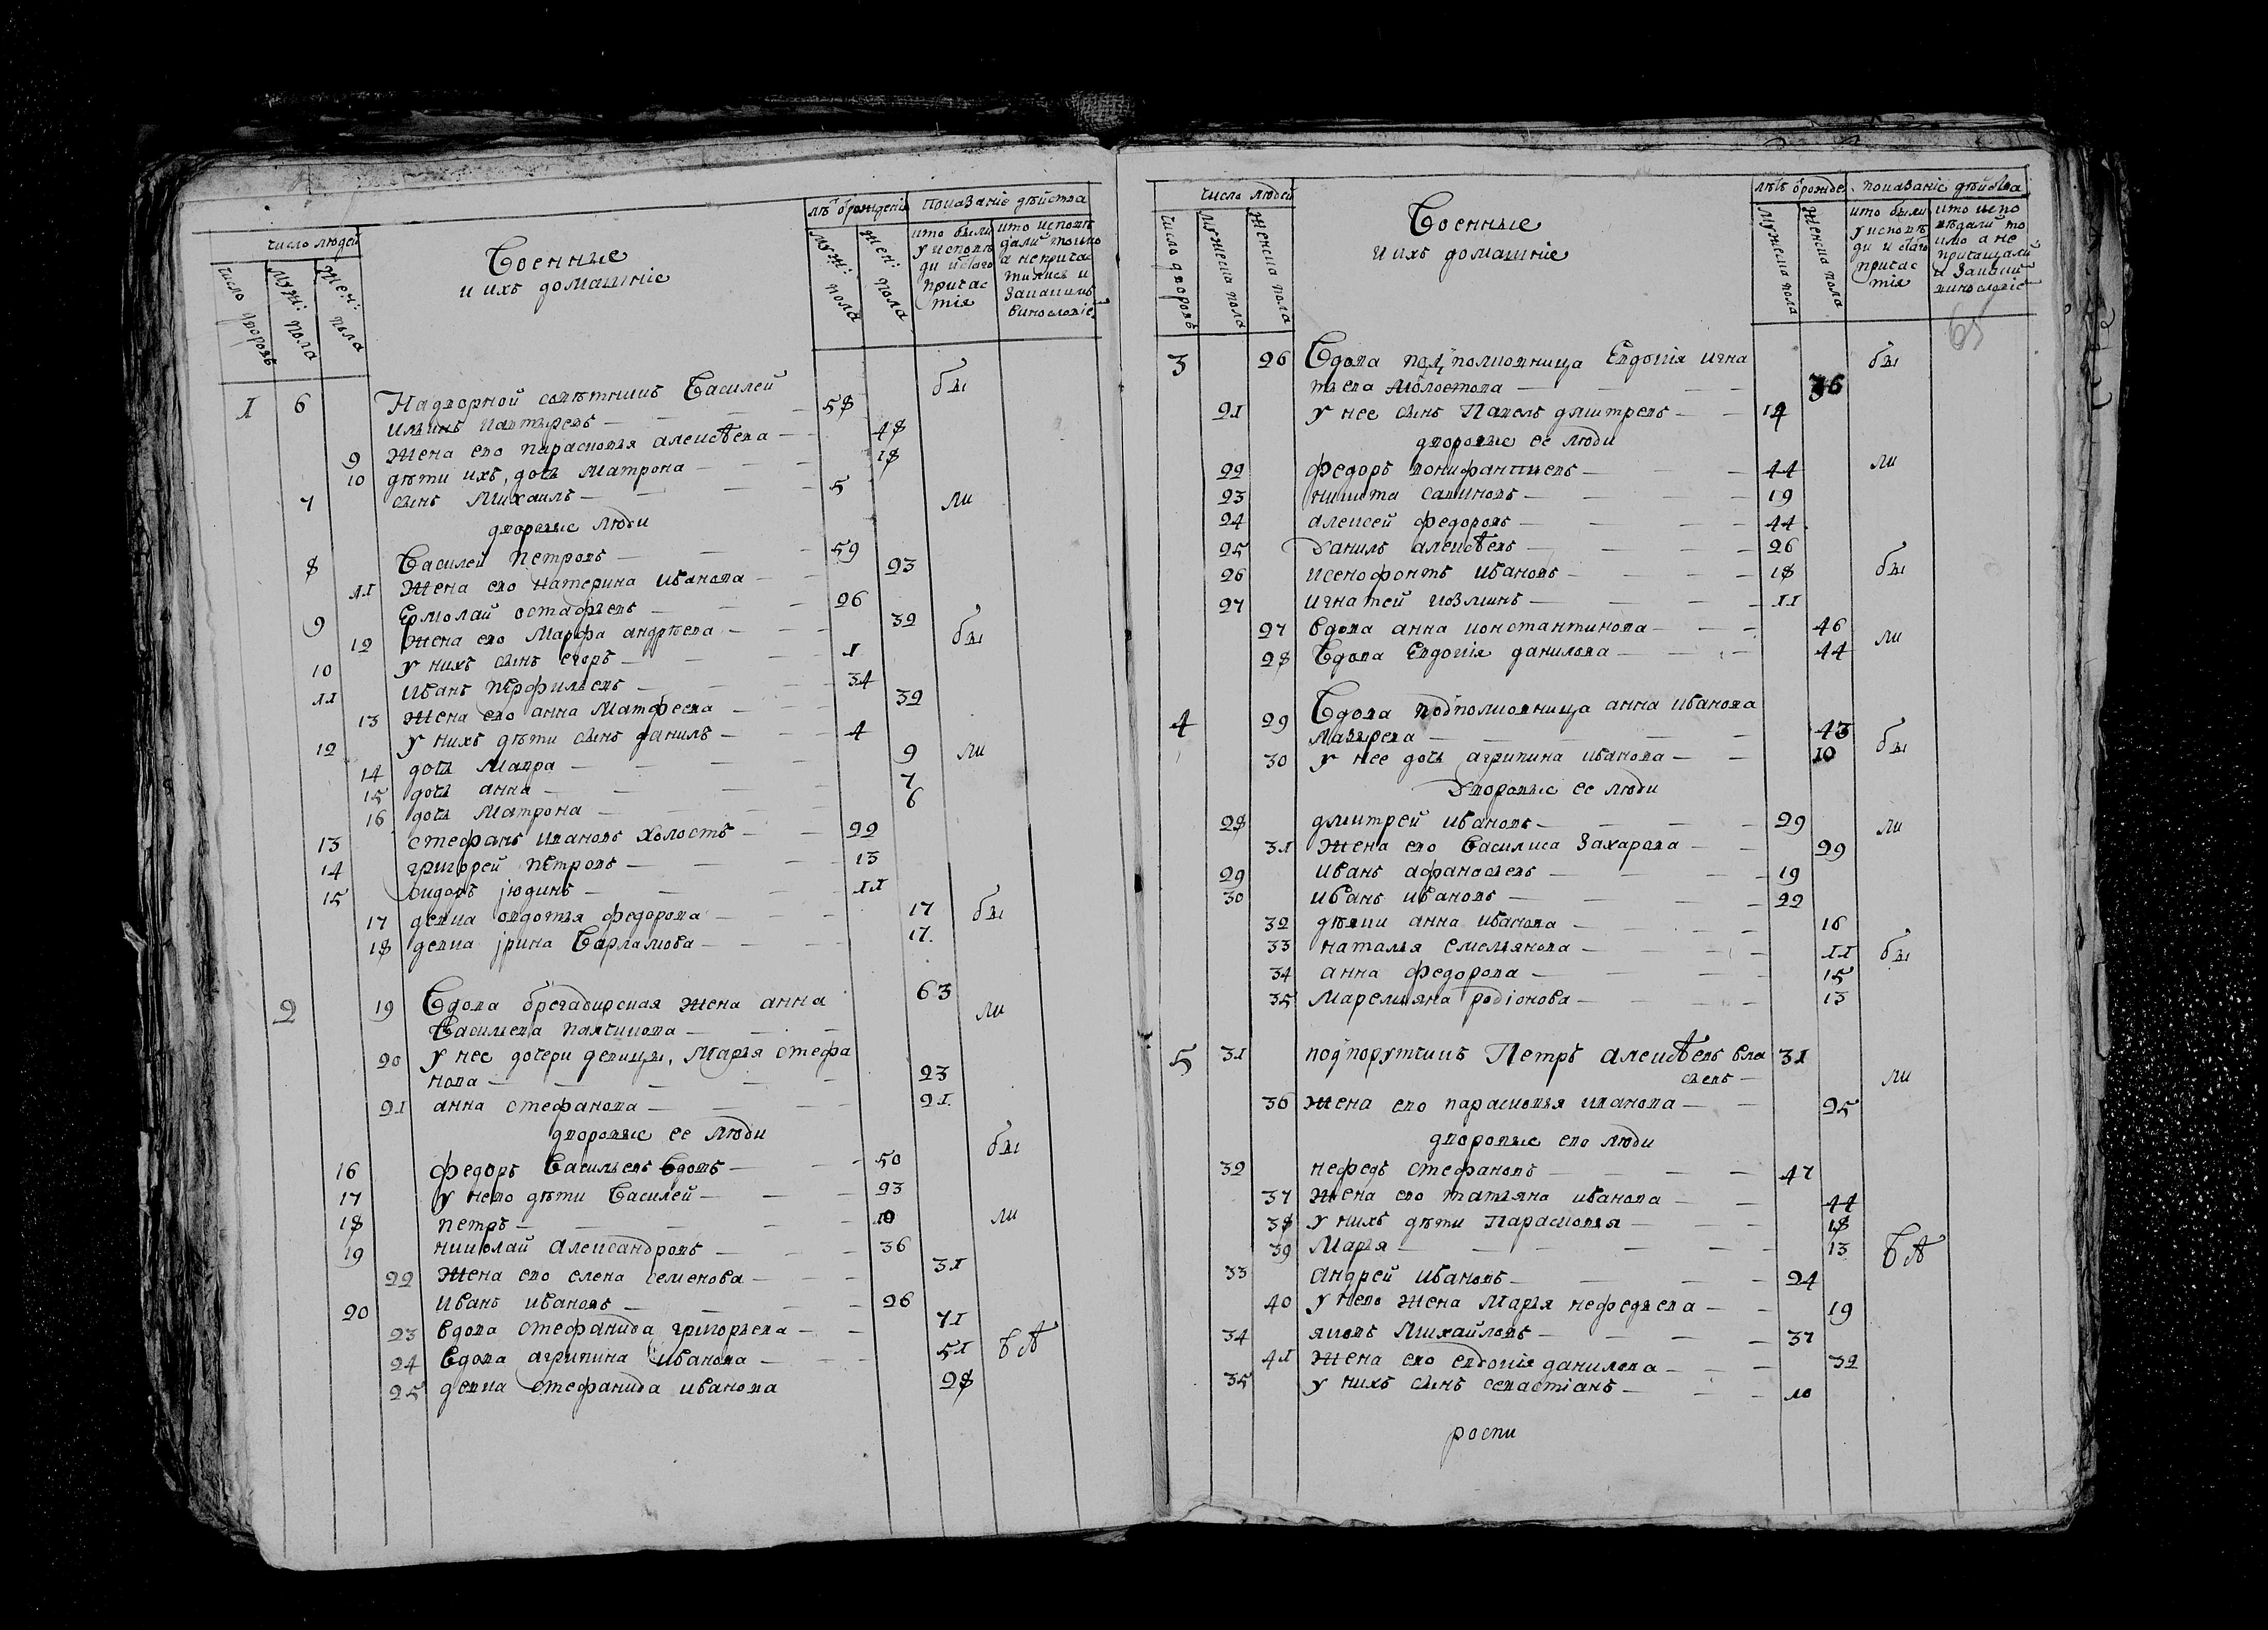 число людей
Военные
и ихъ домашніе
лѣтъ ѿ рожденія
показаніе дѣйства
число дворовъ
муж: пола
жен: пола
муж: пола
жен: пола
кто были у исповѣди и стаго причастія
кто исповѣдали токмо а не причастились и за каким винословіе
1 6 Надворной совѣтникъ Василей бы
ильинъ 58
9 Жена ево парасковья алексѣева — 48
10 дѣти ихъ, дочь Матрона — 18
7 сынъ Михаилъ — 5 ли
дворовые люди
8 Василей петровъ — 59
11 Жена ево катерина иванова — 23
9 Ермолай остафьевъ — 26
12 Жена ево Марфа андрѣева — 32 бы
10 у нихъ сынъ егоръ — 1
11 иванъ перфильевъ — 34
13 Жена ево анна Матфеева — 32
12 у нихъ дѣти сынъ данилъ — 4
14 дочь Мавра — 9 ли
15 дочь анна — 7
16 дочь Матрона — 6
13 стефанъ ивановъ холостъ — 22
14 григорей петровъ — 13
15 сидоръ юдинъ — 11
17 девка овдотья федорова — 17 бы
18 девка ірина Варламова — 17.
2 19 Вдова брегадирская жена анна 63
Васильева — ли
20 у нее дочери девицы, Марья стефа
нова — 23
21 анна стефанова — 21.
дворовые ее люди
16 федоръ Васильевъ вдовъ — 50 бы
17 у него дѣти Василей — 23
18 петръ — 10 ли
19 николай александровъ — 36
22 Жена ево елена семенова — 31
20 иванъ ивановъ — 26
23 вдова стефанида григорьева — 71
24 вдова агрипина иванова — 51
25 девка стефанида иванова 28
число людей
Военные
и ихъ домашніе
лѣтъ ѿ рожде.
показаніе дѣйства
число дворовъ
мужеска пола
женска пола
мужеска пола
женска пола
кто были у исповѣди и стаго причастія
кто исповѣдали токмо а не причащали и за каким винословіе
65
3 26 Вдова подполковница Евдокія игна бы
тьева — 36
21 у нее сынъ Павелъ дмитревъ — 14
дворовые ее люди
22 федоръ вонифантиевъ — 44 ли
23 никита савиновъ — 19
24 алексей федоровъ — 44
25 Данилъ алексѣевъ — 26
26 ксенофонтъ ивановъ — 18 бы
27 игнатей козминъ — 11
27 вдова анна константинова — 46 ли
28 Вдова Евдокія данилова — 44
4 29 Вдова подполковница анна иванова
43
30 у нее дочь агрипина иванова — 10 бы
Дворовые ее люди
28 дмитрей ивановъ — 29 ли
31 жена ево Василиса Захарова — 29
29 иванъ афанасьевъ — 19
30 иванъ ивановъ — 22
32 дѣвки анна иванова — 16
33 наталья емельянова — 11 бы
34 анна федорова — 15
35 Маремьяна родіонова — 13
5 31 подпорутчикъ Петръ алексѣевъ вла 31
сьевъ — ли
36 Жена ево парасковья иванова — 25
дворовые ево люди
32 нефедъ стефановъ — 47
37 Жена ево татьяна иванова — 44
38 у нихъ дѣти Парасковья — 18
39 Марья — 13
33 андрей ивановъ — 24
40 у него жена Марья нефедьева — 19
34 яковъ Михайловъ — 37
41 Жена ево евдокія данилова — 32
35 у нихъ сынъ севастіанъ — 10
роспи